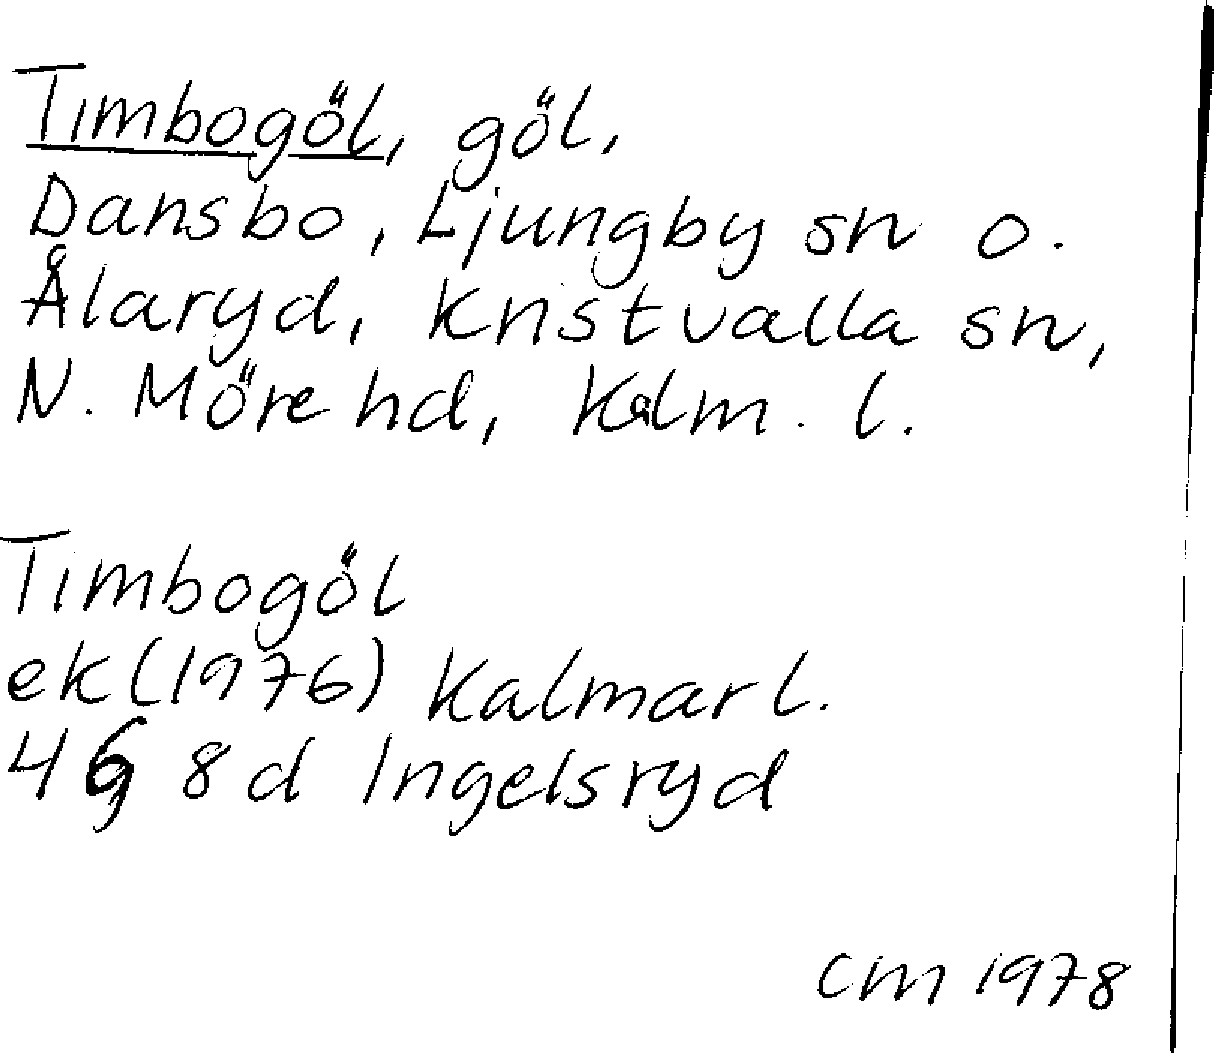 Timbogöl, göl,
Dansbo, Ljungby sn o.
Ålaryd, Kristvalla sn,
N. Möre hd, Kalm. l.
Timbogöl
ek (1976) Kalmar l.
4G 8d Ingelsryd
CM 1978